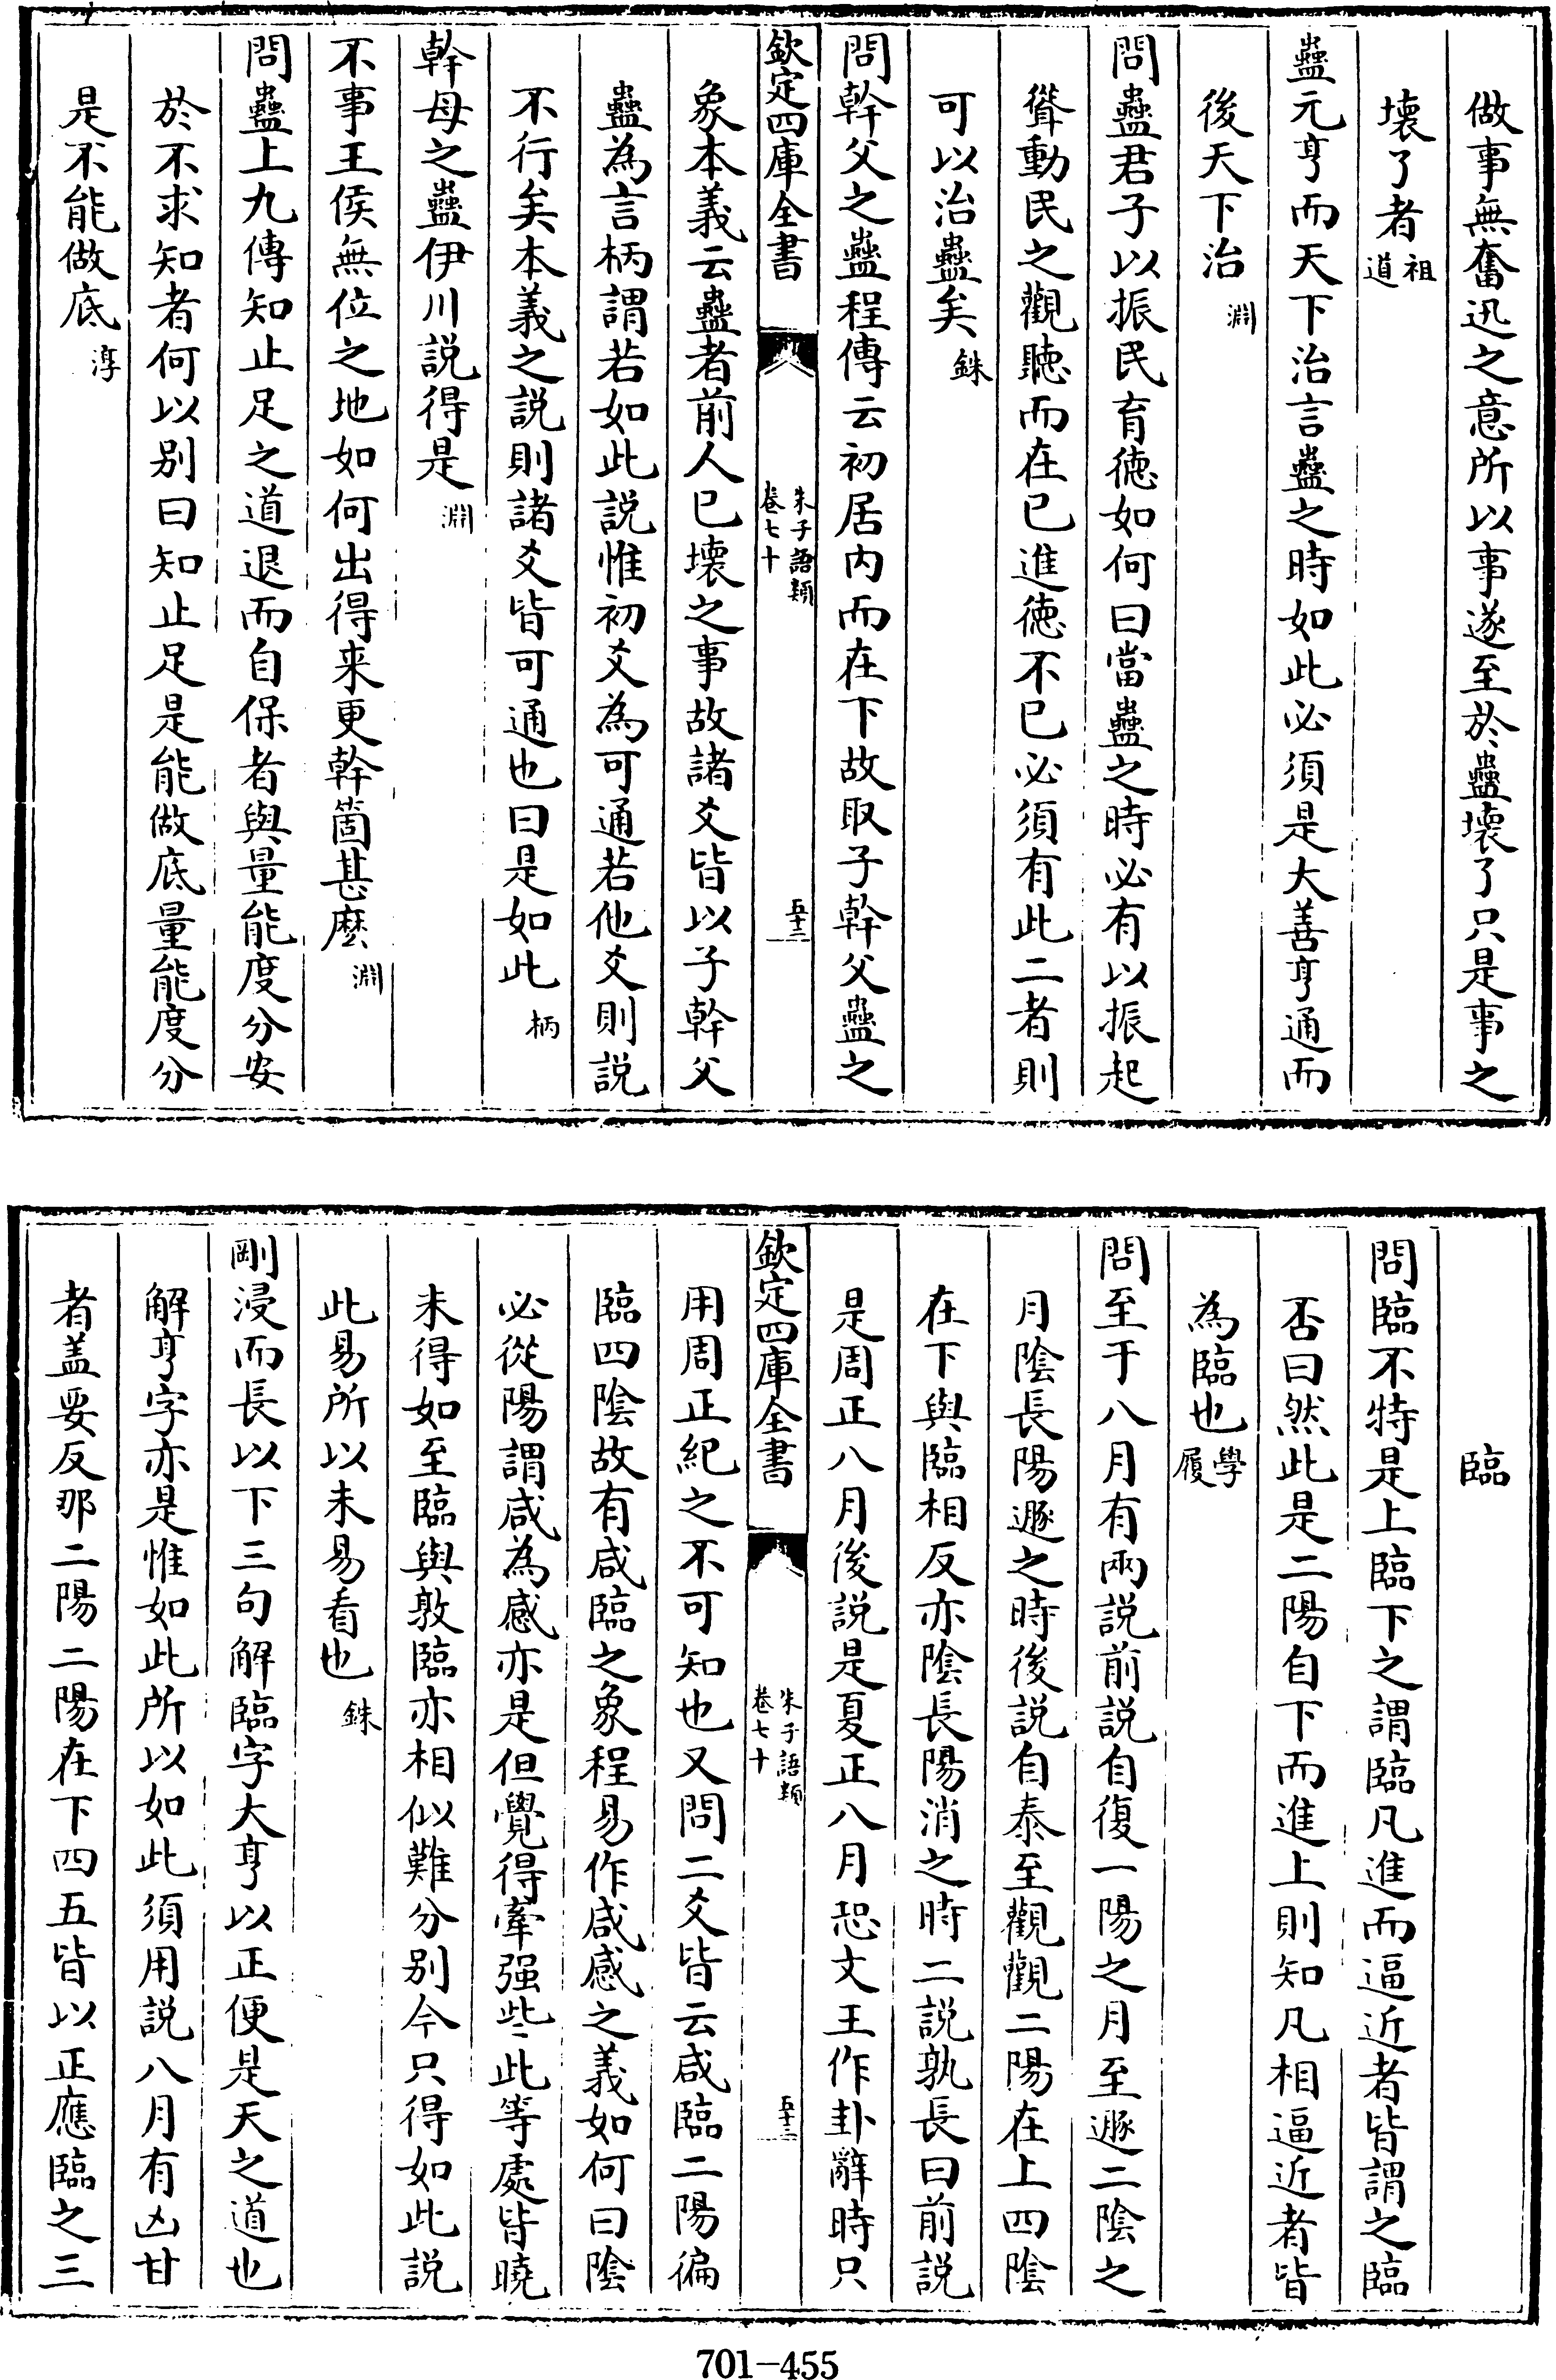 做事無奮迅之意所以事遂至於蠱壊了只是事之
壊了者祖道
蠱元亨而天下治言蠱之時如此必須是大善亨通而
後天下治淵
問蠱君子以振民育徳如何曰當蠱之時必有以振起
聳動民之觀聽而在已進徳不已必須有此二者則
可以治蠱矣銖
問幹父之蠱程傳云初居内而在下故取子幹父蠱之
欽定四庫全書
朱子語類
卷七十
五十二
象本義云蠱者前人已壊之事故諸爻皆以子幹父
蠱為言柄謂若如此説惟初爻為可通若他爻則説
不行矣本義之説則諸爻皆可通也曰是如此柄
幹母之蠱伊川説得是淵
不事王侯無位之地如何出得来更幹箇甚麽淵
問蠱上九傳知止足之道退而自保者與量能度分安
於不求知者何以别曰知止足是能做底量能度分
是不能做底淳
臨
問臨不特是上臨下之謂臨凡進而逼近者皆謂之臨
否曰然此是二陽自下而進上則知凡相逼近者皆
為臨也學履
問至于八月有兩説前説自復一陽之月至遯二陰之
月陰長陽遯之時後説自泰至觀觀二陽在上四陰
在下與臨相反亦陰長陽消之時二説孰長曰前説
是周正八月後説是夏正八月恐文王作卦辭時只
欽定四庫全書
朱子語類
卷七十
五十三
用周正紀之不可知也又問二爻皆云咸臨二陽徧
臨四陰故有咸臨之象程易作咸感之義如何曰陰
必從陽謂咸為感亦是但覺得牽强些此等處皆曉
未得如至臨與敦臨亦相似難分别今只得如此説
此易所以未易看也銖
剛浸而長以下三句解臨字大亨以正便是天之道也
解亨字亦是惟如此所以如此須用説八月有凶甘
者盖要反那二陽二陽在下四五皆以正應臨之三
701-455